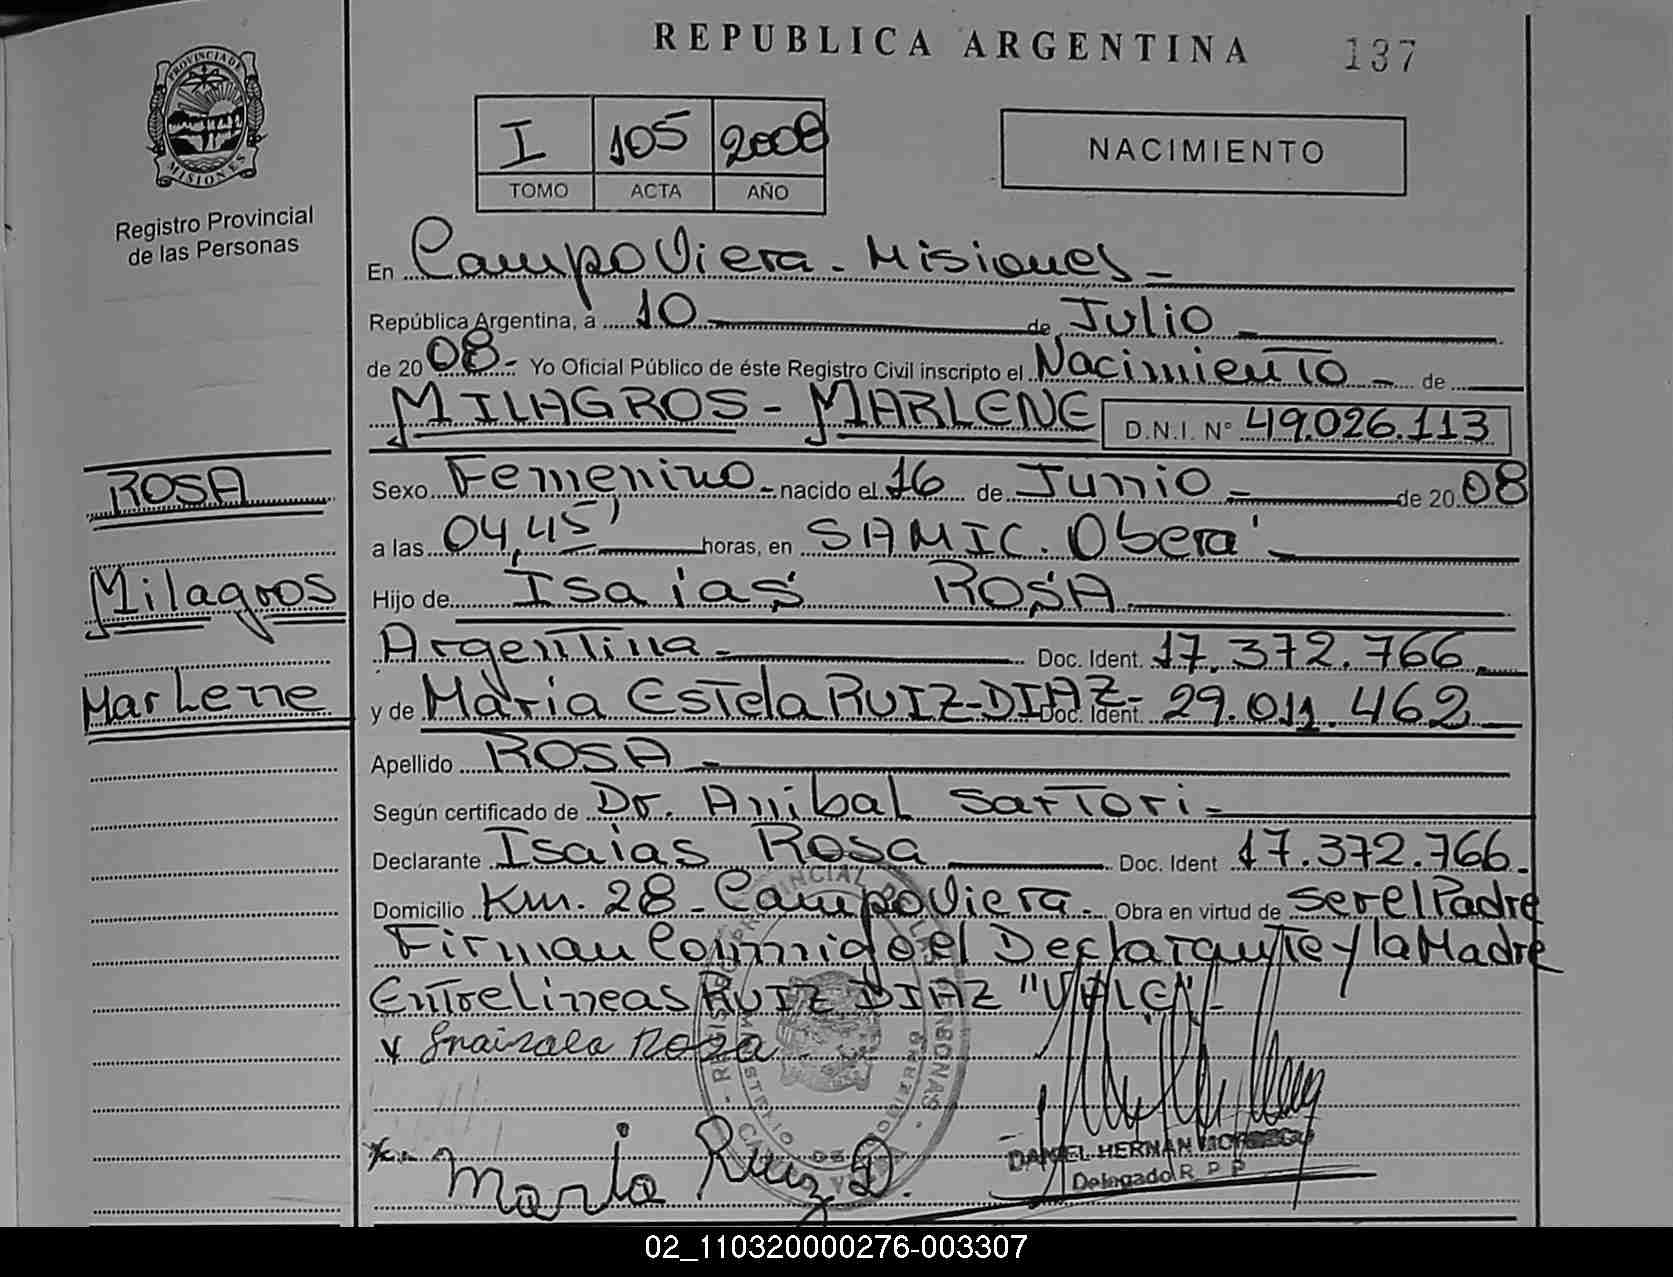 REPUBLICA ARGENTINA 137
PROVINCIA DE MISIONES
Registro Provincial
de las Personas
I 105 2008
TOMO ACTA AÑO
NACIMIENTO
En Campo Viera - Misiones -
República Argentina, a 10 de Julio -
de 20 08 - Yo Oficial Público de éste Registro Civil inscripto el Nacimiento - de
MILAGROS - MARLENE D.N.I. N° 49.026.113
ROSA
Milagros
Marlene
Sexo Femenino - nacido el 16 de Junio - de 20 08
a las 04,45' horas, en SAMIC. Oberá -
Hijo de Isaias ROSA
Argentina - Doc. Ident. 17.372.766
y de Maria Estela RUIZ-DIAZ- Doc. Ident. 29.011.462
Apellido ROSA -
Según certificado de Dr. Anibal Sartori -
Declarante Isaias Rosa Doc. Ident 17.372.766.
Domicilio Km. 28 - Campo Viera - Obra en virtud de ser el Padre
Firman Conmigo el Declarante y la Madre
Entrelineas RUIZ DIAZ "VALE" -
Rosa
Maria Ruiz D.
DANIEL HERNAN
Delegado R. P. P
02_110320000276-003307